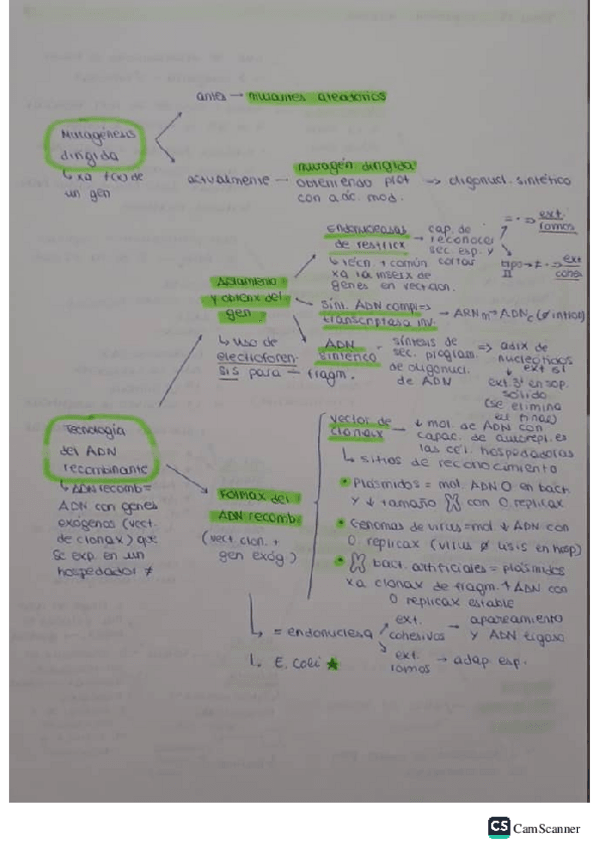 antes → mutantes aleatorios
Mutagénesis
dirigida
↳ xa f(x) de
un gen
actualmente — mutagén dirigida
obteniendo prot
con aác. mod.
→ oligonucl. sintético
Endonucleasas
de restricx
→ cap. de
reconocer
sec. esp. y
cortar
= · → ext.
romos
tipo
II
ext
cohes
↳ técn. + común
xa la inserx de
genes en vect clon.
Aislamiento
y obtenx del
gen.
↳ uso de
electrofore-
sis para — fragm.
sínt. ADN compl =>
transcriptasa inv.
→ ARNm → ADNc (∅ intron)
ADN
sintético
- síntesis de
sec. program.
de oligonucl.
de ADN
=> adix de
nucleótidos
↓ ext 5'
ext. 3' en sop.
sólido
(se elimina
al final)
Tecnología
del ADN
recombinante
↳ ADN recomb =
ADN con genes
exógenos (vect.
de clonax) que
se exp. en un
hospedador ≠
Formax del
ADN recomb
(vect. clon. +
gen exóg.)
vector de
clonax
→ ↓ mol. de ADN con
capac. de autorepl. en
las cél. hospedadoras
↳ sitios de reconocimiento
Plásmidos = mol. ADN O en bact
y ↓ tamaño con O. replicax
Genomas de virus = mol ↓ ADN con
O. replicax (virus ∅ lisis en hosp)
bact. artificiales = plásmidos
xa clonax de fragm. ↑ ADN con
O replicax estable
↳ = endonucleasa
ext.
cohesivos
→ apareamiento
y ADN ligasa
ext.
romos
→ adap. esp.
1. E. coli ★
CS CamScanner